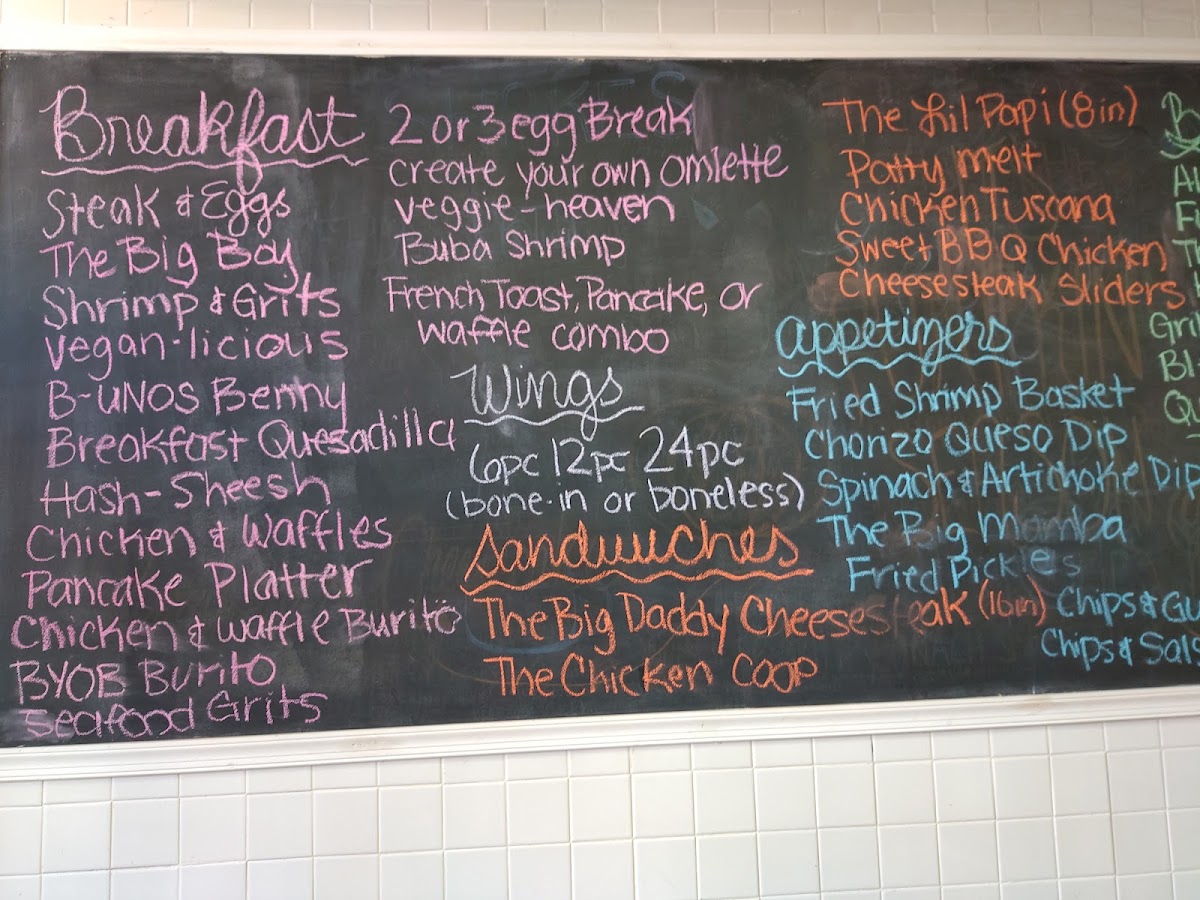 Breakfast
Steak & Eggs
The Big Boy
Shrimp & Grits
Vegan-licious
B-UNOS Benny
Breakfast Quesadilla
Hash-Sheesh
Chicken & Waffles
Pancake Platter
Chicken & Waffle Burito
BYOB Burito
Seafood Grits
2 or 3 egg Break
create your own omlette
veggie-heaven
Buba Shrimp
French Toast, Pancake, or
waffle combo
Wings
6pc 12pc 24pc
(bone-in or boneless)
Sandwiches
The Big Daddy Cheesesteak (16in)
The Chicken Coop
The Lil Papi (8in)
Patty Melt
Chicken Tuscana
Sweet BBQ Chicken
Cheesesteak Sliders
appetizers
Fried Shrimp Basket
Chorizo Queso Dip
Spinach & Artichoke Dip
The Big Mamba
Fried Pickles
Chips &
Chips &